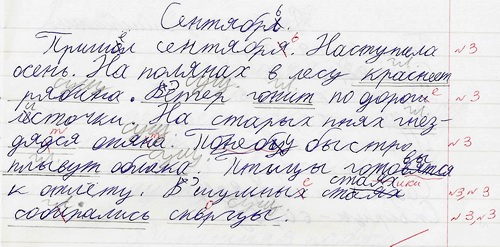 Сентябрь.
Пришёл сентябрь. Наступила №3
осень. На полянах в лесу краснеет
рябина. Ветер гонит по дороги №3
листочки. На старых пнях гнез-
дядся опяна. По небу быстро №3
плывут облака. Птицы готовятся
к отлету. В шумных стаях №3, №3
собирались скворцы. №3, №3